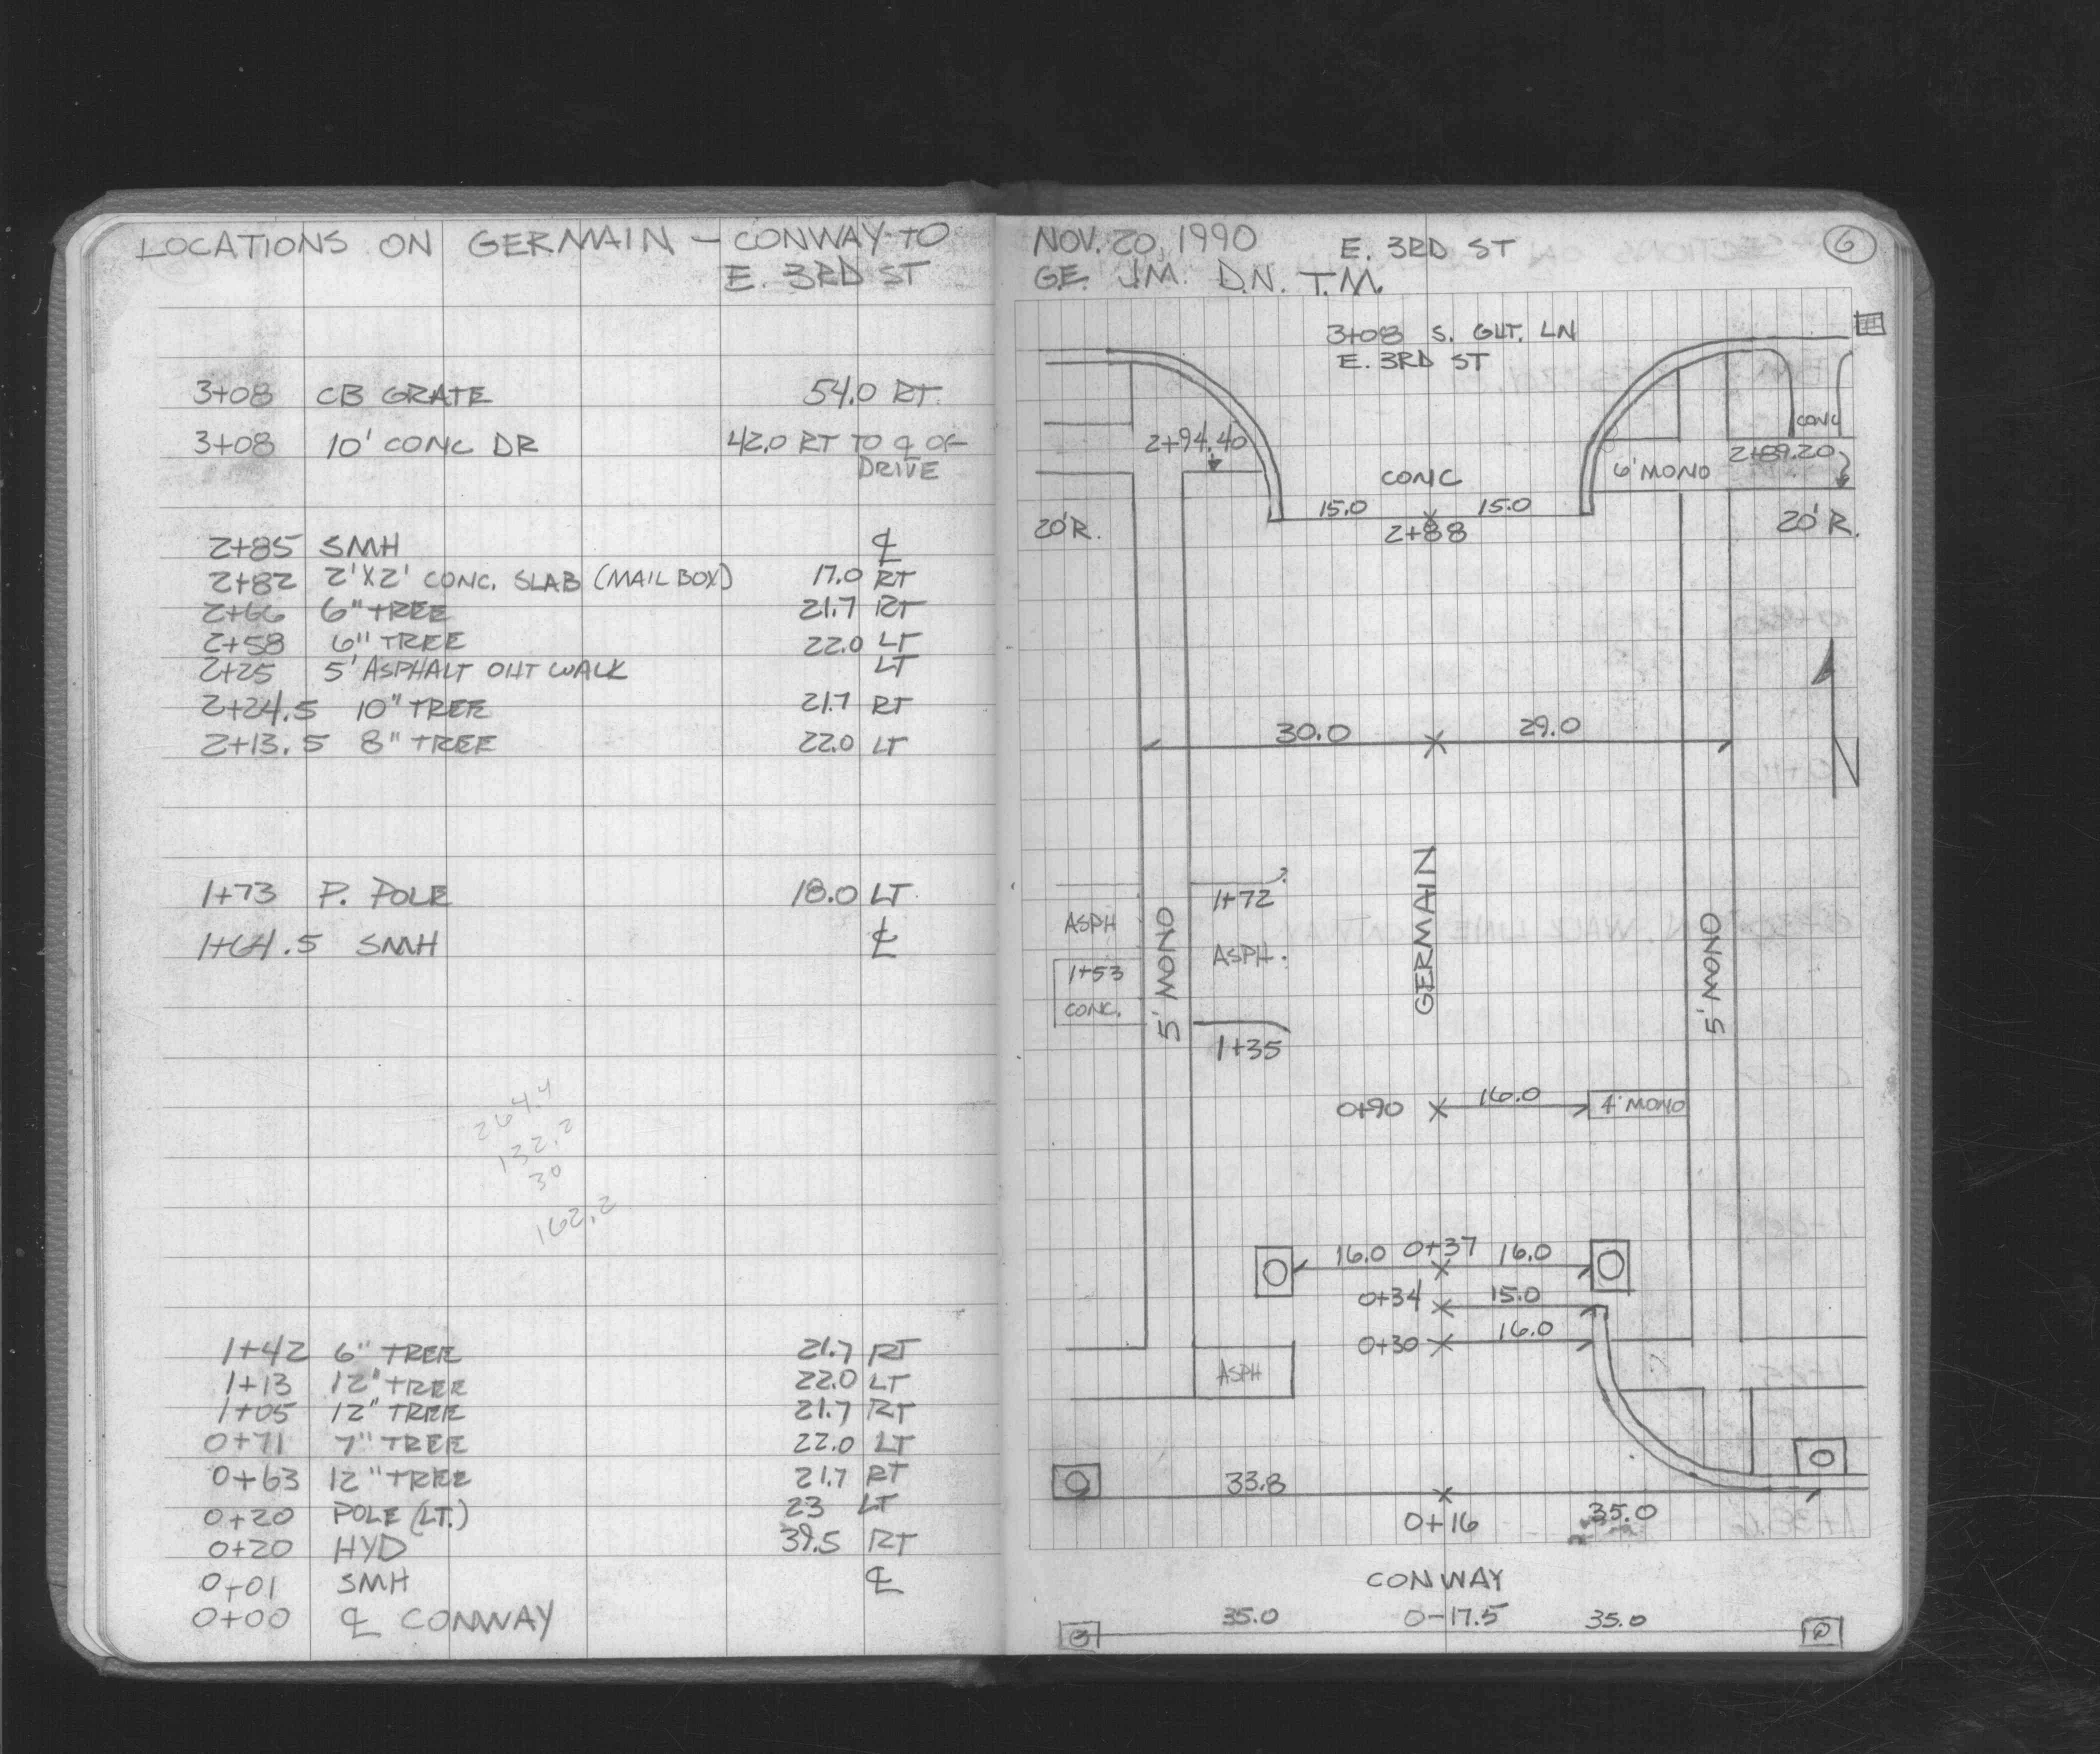 LOCATIONS ON GERMAIN - CONWAY TO
E. 3RD ST
3+08 CB GRATE 54.0 RT.
3+08 10' CONC DR 42.0 RT TO ℄ OF
DRIVE
2+85 SMH ℄
2+82 2'X2' CONC. SLAB (MAIL BOX) 17.0 RT
2+66 6" TREE 21.7 RT
2+58 6" TREE 22.0 LT
2+25 5' ASPHALT OUT WALK LT
2+24.5 10" TREE 21.7 RT
2+13.5 8" TREE 22.0 LT
1+73 P. POLE 18.0 LT
1+64.5 SMH ℄
264.4
132.2
30
162.2
1+42 6" TREE 21.7 RT
1+13 12" TREE 22.0 LT
1+05 12" TREE 21.7 RT
0+71 7" TREE 22.0 LT
0+63 12" TREE 21.7 RT
0+20 POLE (LT.) 23 LT
0+20 HYD 39.5 RT
0+01 SMH ℄
0+00 ℄ CONWAY
NOV. 20, 1990 E. 3RD ST 6
G.E. J.M. D.N. T.M.
3+08 S. GUT. LN
E. 3RD ST
CONC
2+94.40 CONC 6' MONO 2+89.20
15.0 15.0
20'R. 2+88 20'R.
30.0 29.0
N
1+72
ASPH ASPH.
1+53
CONC.
5' MONO GERMAIN 5' MONO
1+35
0+90 16.0 4' MONO
16.0 0+37 16.0
0+34 15.0
0+30 16.0
ASPH
33.8
0+16 35.0
CONWAY
35.0 0-17.5 35.0